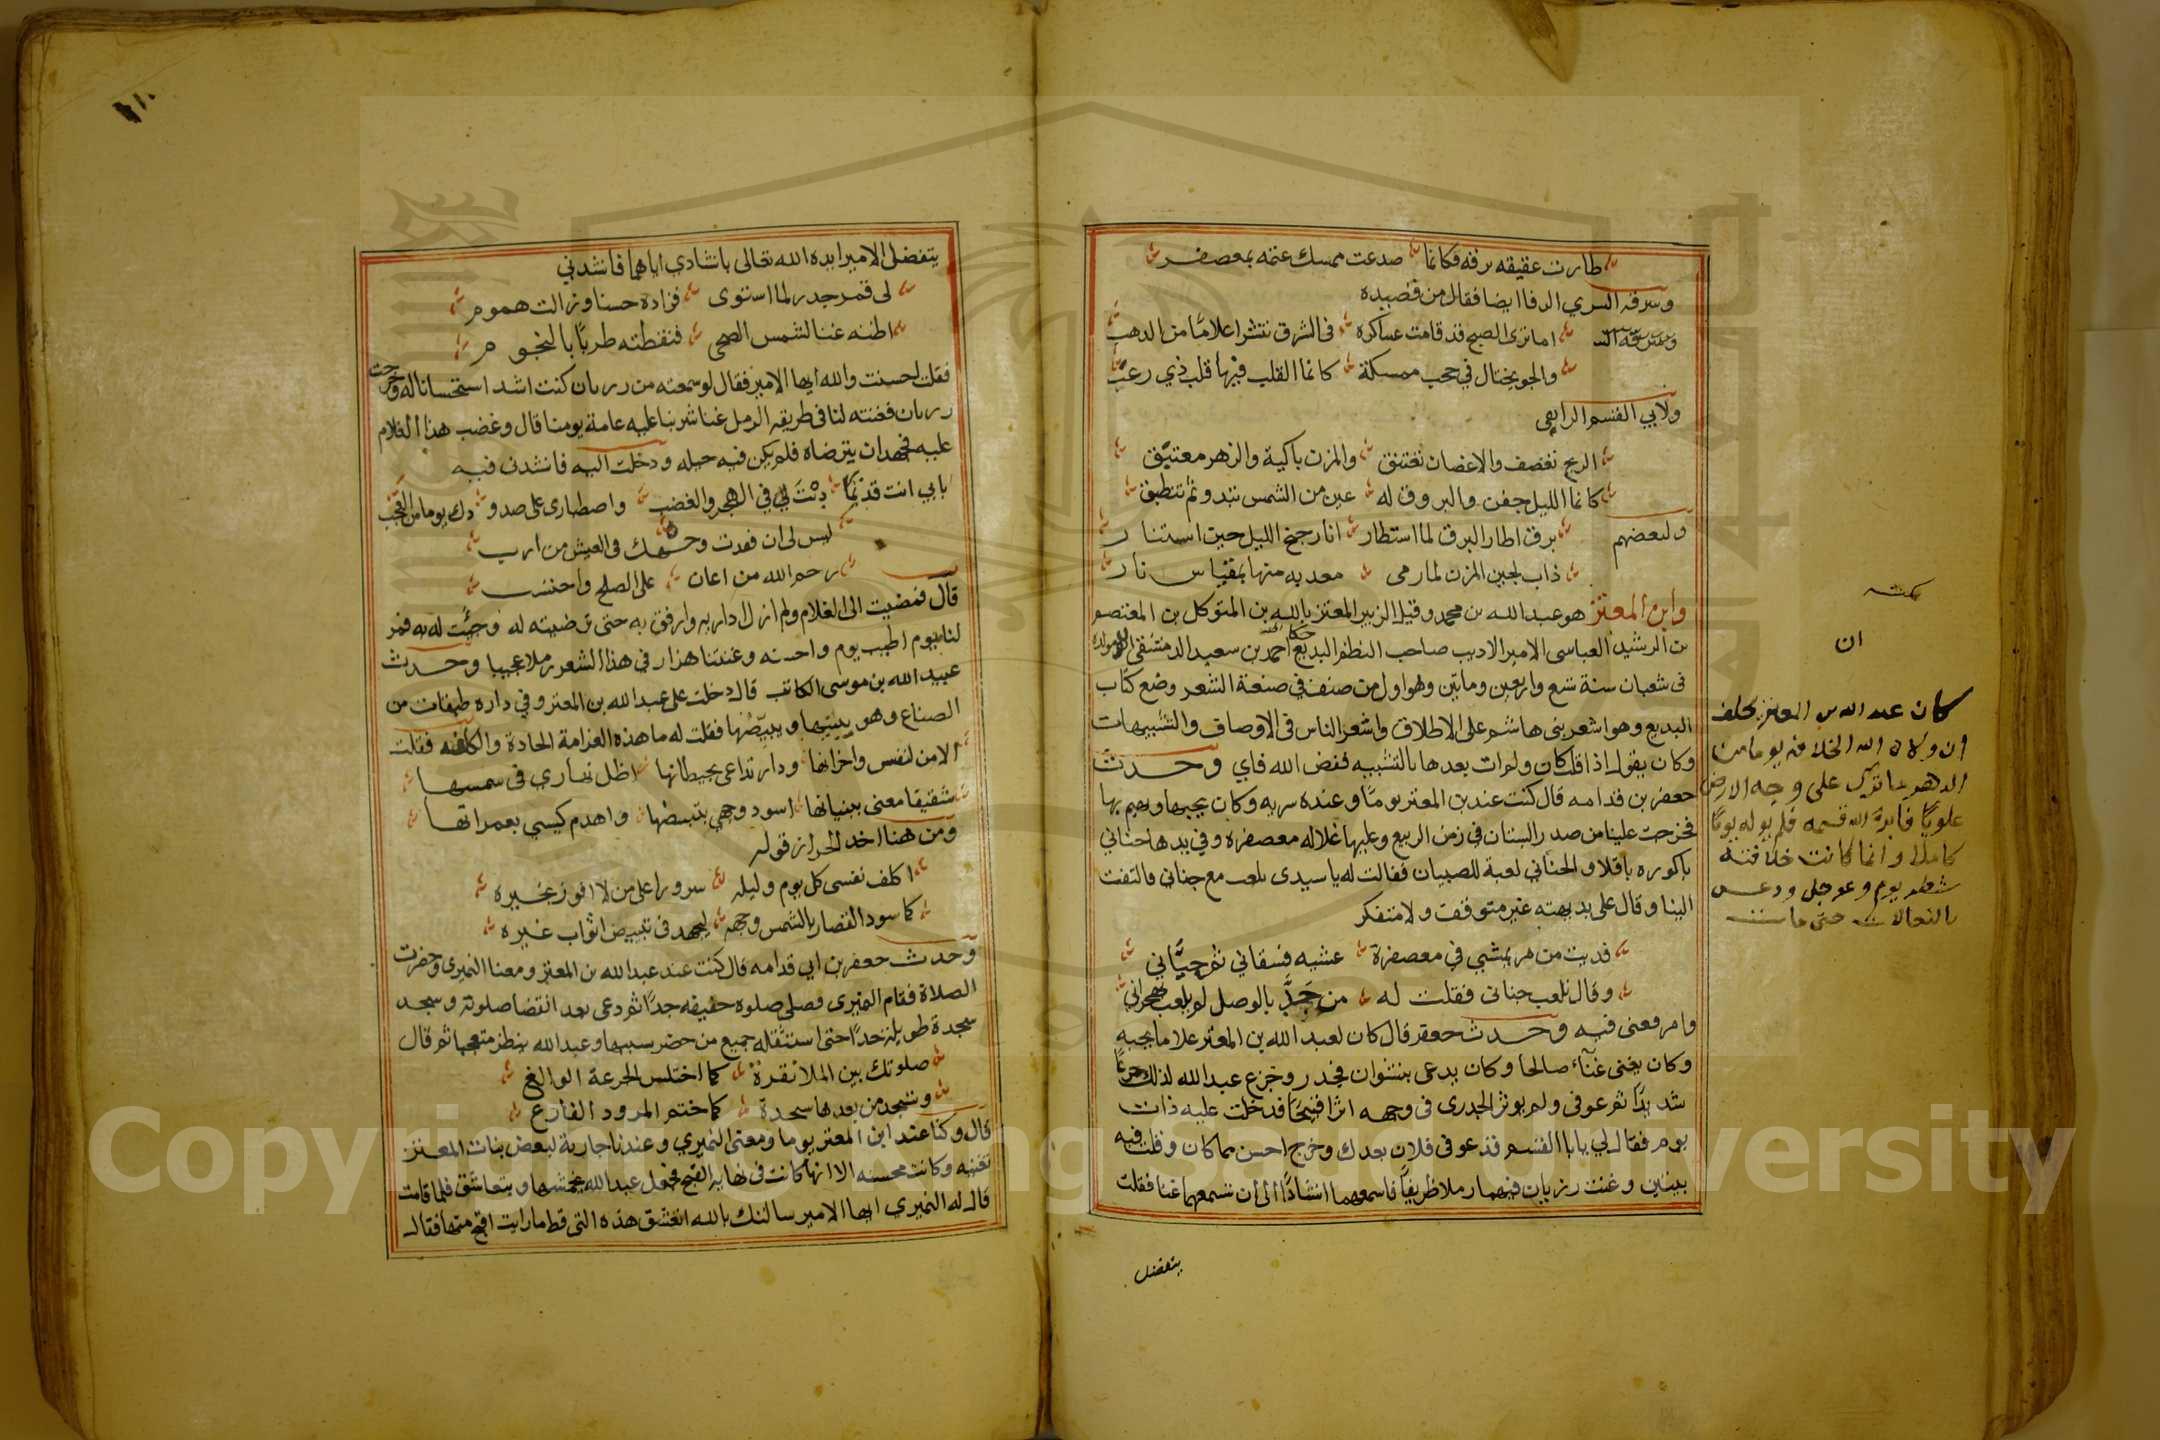 طارت عقيقه برقه فكانما صدعت ممسك غيمه بمعصفر
وسرقه السري الرفا ايضا فقال من قصيده
اما ترى الصبح قد قامت عساكره في الشرق تنشر اعلاما من الذهب
والجو يختال في حجب ممسكة كانما القلب فيها قلب ذي رعب
ولابي القسم الزاهي
الريح تعصف والاغصان تعتنق والمزن باكية والزهر معتبق
كانما الليل جفن والبروق له عين من الشمس تبدو ثم تنطبق
ولبعضهم برق اطار البرق لما استطار انار جنح الليل حين استنار
ذاب لجين المزن لما رمى معدنه منها بمقياس نار
وابن المعتز هو عبد الله بن محمد وقيل الزبير المعتز بالله بن المتوكل بن المعتصم
بن الرشيد العباسي الامير الاديب صاحب النظم البديع احمد بن سعيد الدمشقي مولده
في شعبان سنة تسع واربعين ومايتين وهو اول من صنف في صنعة الشعر وضع كتاب
البديع وهو اشعر بني هاشم على الاطلاق واشعر الناس في الاوصاف والتشبيهات
وكان يقول اذا قلت كان ولم ات بعدها بالتشبيه ففض الله فاي وحدث
جعفر بن قدامه قال كنت عند بن المعتز يوما وعنده سريه وكان يحبها ويهيم بها
فخرجت علينا من صدر البستان في زمن الربيع وعليها غلاله معصفرة وفي يدها جنابي
باكوره باقلا والجنابي لعبة للصبيان فقالت له يا سيدي تلعب مع جنابي فالتفت
الينا وقال على بديهته غير متوقف ولا متفكر
فديت من مر يمشي في معصفرة عشيه فسقاني ثم حياني
وقال تلعب جنابي فقلت له من جد بالوصل لم يلعب بهجراني
وامر فغنى فيه وحدث جعفر قال كان لعبد الله بن المعتز غلاما يحبه
وكان يغني غناء صالحا وكان يدعى بنشوان فجدر وجزع عبد الله لذلك جزعا
شديدا ثم عوفي ولم يوثر الجدري في وجهه اثرا قبيحا فدخلت عليه ذات
يوم فقال لي يا ابا القسم قد عوفي فلان بعدك وخرج احسن مما كان وقلت فيه
بيتين وغنت رزيان فيهما رملا ظريفا فاسمعهما انشادا الى ان تسمعهما غنا فقلت
يتفضل
ان
كان عبد الله بن المعتز يحلف
ان ولاه الله الخلافه يوما من
الدهر ما ترك على وجه الارض
علويا فابر الله قسمه فلم يوله يوما
كاملا وانما كانت خلافته
شطر يوم وعوجل
بالنعال حتى مات
يتفضل الامير ايده الله تعالى بانشادي اياهما فانشدني
لي قمر جدر لما استوى فزاده حسنا وزالت هموم
اظنه غنا لشمس الضحى فنقطته طربا بالنجوم
فقلت احسنت والله ايها الامير فقال لو سمعته من زرياب كنت اشد استحسانا له وخرجت
زرياب فغنته لنا في طريقه الرمل غنا شربنا عليه عامة يومنا قال وغضب هذا الغلام
عليه فجهد ان يترضاه فلم يكن فيه حيله ودخلت اليه فانشدني فيه
بابي انت قد تماديت لي في الهجر والغضب واصطباري على صدودك يوما من العجب
ليس لي ان فقدت وجهك في العيش من ارب
رحم الله من اعان على الصلح واحتسب
قال فمضيت الى الغلام ولم ازل اداريه وارفق به حتى ترضيته له وجئت له به فمر
لنا يوم اطيب يوم واحسنه وغنتنا هزار في هذا الشعر رملا عجيبا وحدث
عبيد الله بن موسى الكاتب قال دخلت على عبد الله بن المعتز وفي داره طبقات من
الصناع وهو يبنيها ويبيضها فقلت له ما هذه الغرامة الحادة والكلفه فقلت
الا من لنفس واحزانها ودار تداعى بحيطانها اظل نهاري في شمسها
شقيقا معنى ببنيانها اسود وجهي بتبييضها واهدم كيسي بعمرانها
ومن هنا اخذ الجزار قوله
اكلف نفسي كل يوم وليله سرورا على من لا افوز بخيره
كما سود القصار بالشمس وجهه ليجهد في تبييض اثواب غيره
وحدث جعفر بن ابي قدامه قال كنت عند عبد الله بن المعتز ومعنا النميري وحضرت
الصلاة فقام النميري فصلى صلوه خفيفه جدا ثم دعى بعد انقضا صلوته وسجد
سجدة طويله جدا حتى استثقله جميع من حضر بسببها وعبد الله ينظر متعجبا ثم قال
صلوتك بين الملا نقرة كما اختلس الجرعة الوالغ
وتسجد من بعدها سجدة كما ختم المزود الفارغ
قال وكنا عند ابن المعتز يوما ومعنا النميري وعندنا جارية لبعض بنات المعتز
تغنيه وكانت محسنه الا انها كانت في نهاية القبح فجعل عبد الله يجمشها ويتعاشق فلما قامت
قال له النميري ايها الامير سالتك بالله اتعشق هذه التي قط ما رايت اقبح منها فقال